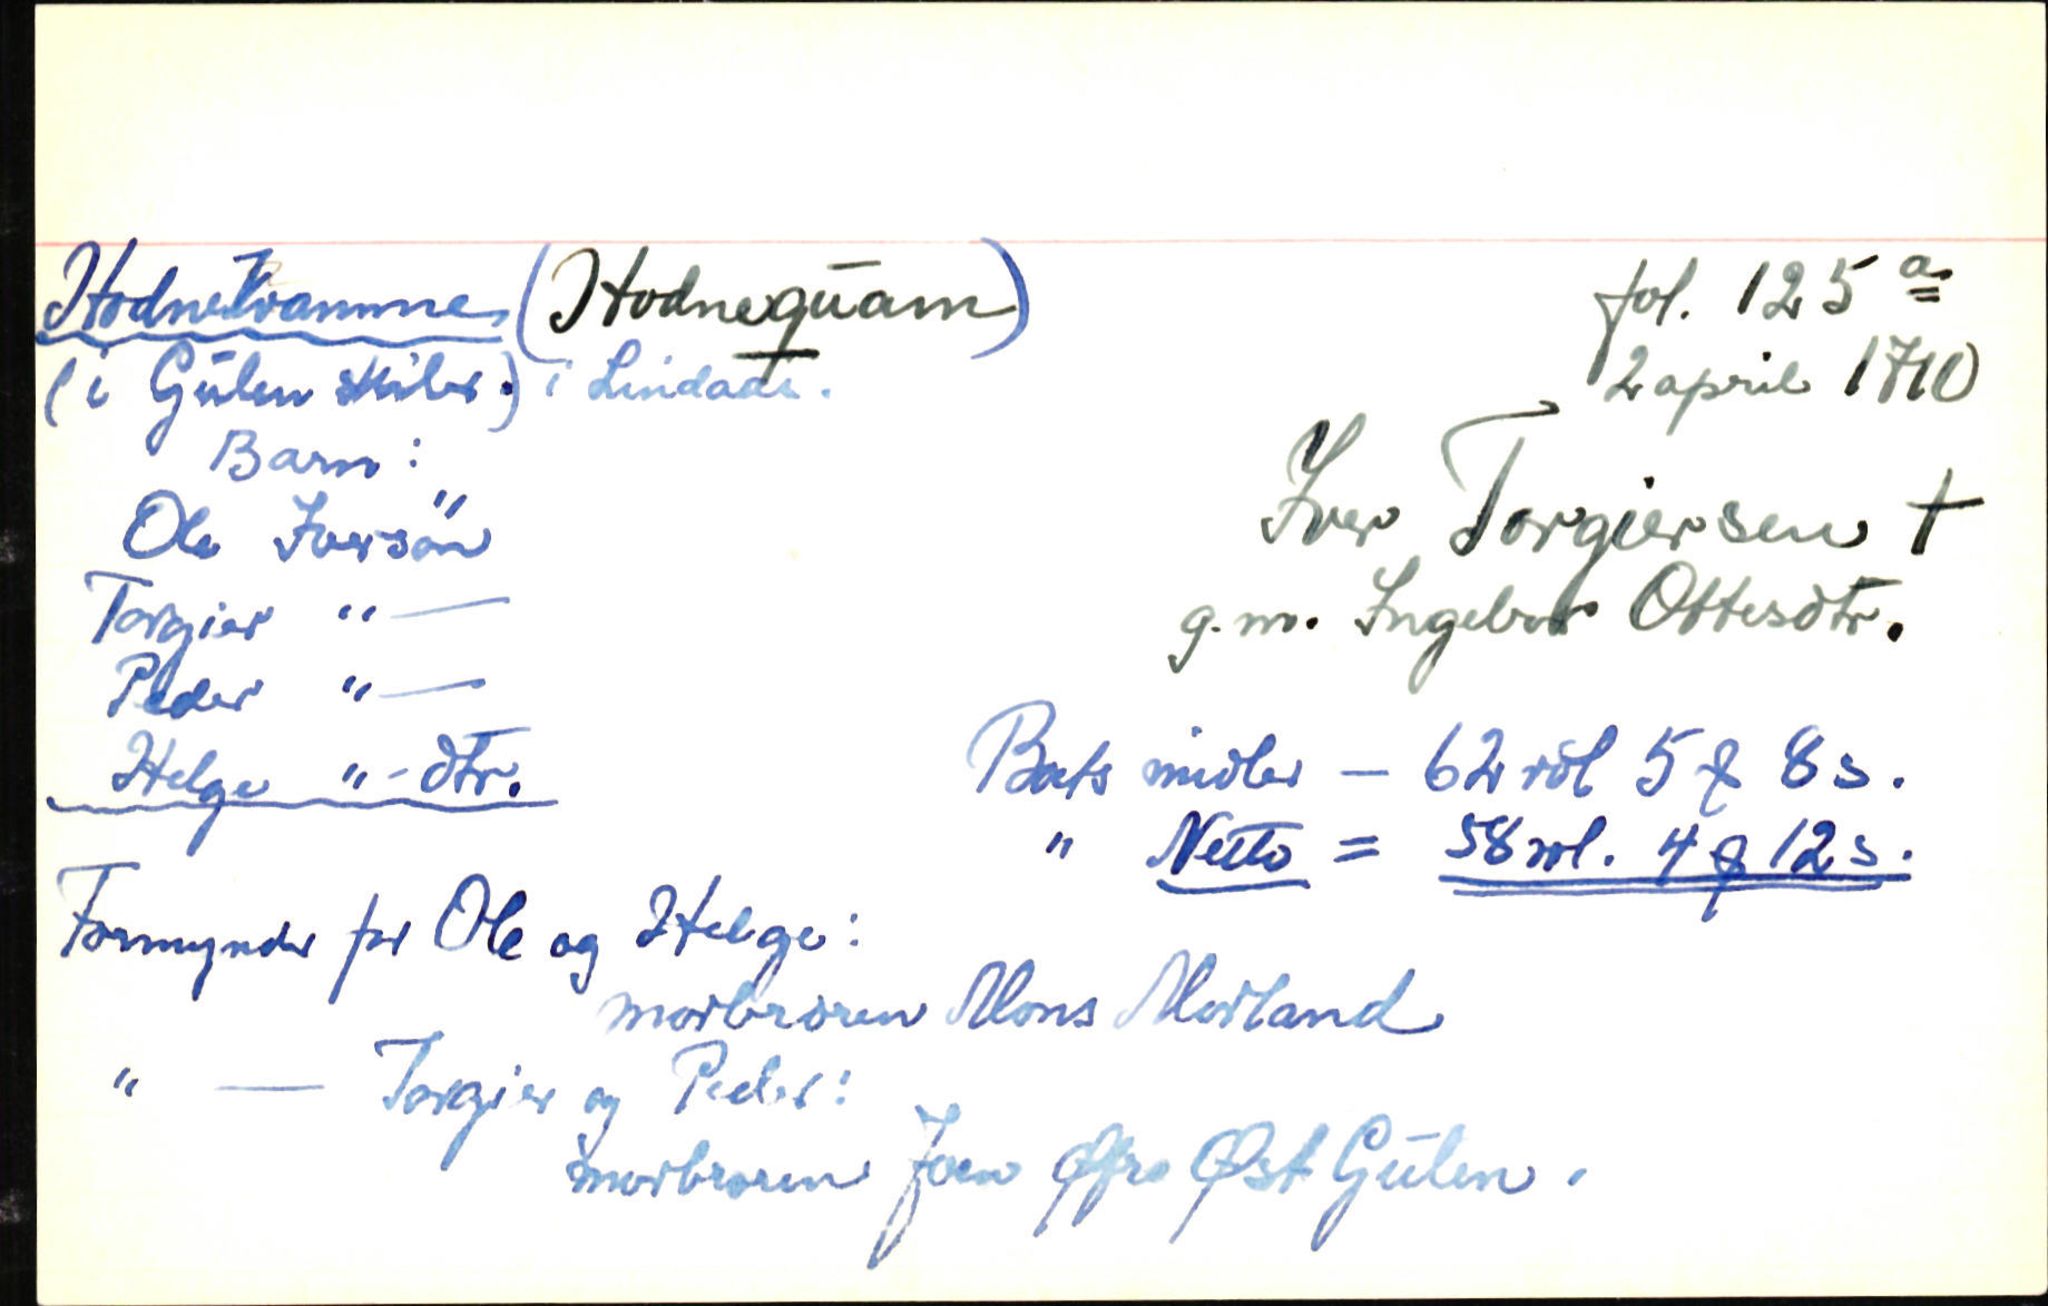 Hodnekvamme (Hodnequam)
(i Gulen skibr.) i Lindaas.
fol. 125 a
2 april 1710
Iver Torgiersen †
g.m. Ingebor Ottesdtr.
Barn:
Ole Iversøn
Torgier " —
Peder " —
Helge " - dtr.
Boets midler — 62 rdl 5 ƒ 8 s.
" Netto = 58 rdl. 4 ƒ 12 s.
Formynder for Ole og Helge:
morbroren Mons Morland
" — Torgier og Peder:
morbroren Joen Øfre Øst Gulen.